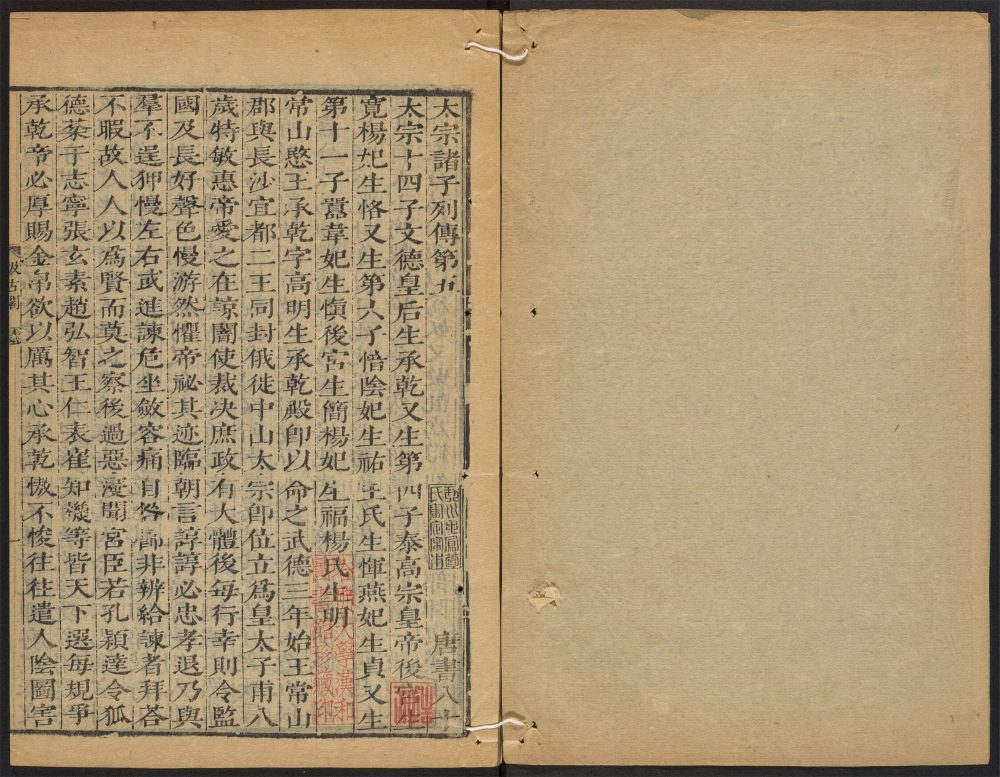 太宗諸子列傳第五 唐書八十
太宗十四子文德皇后生承乾又生第四子泰高宗皇帝後宮生
寬楊妃生恪又生第六子愔陰妃生祐王氏生惲燕妃生貞又生
第十一子囂韋妃生愼後宮生簡楊妃生福楊氏生明
常山愍王承乾字高明生承乾殿卽以命之武德三年始王常山
郡與長沙宜都二王同封俄徙中山太宗卽位立爲皇太子甫八
歲特敏惠帝愛之在諒闇使裁決庶政有大體後每行幸則令監
國及長好聲色慢游然懼帝祕其迹臨朝言諄諄必忠孝退乃與
羣不逞狎慢左右或進諫危坐斂容痛自咎飾非辨給諫者拜荅
不暇故人人以爲賢而莫之察後過惡寖聞宮臣若孔潁達令狐
德棻于志寧張玄素趙弘智王仁表崔知機等皆天下選每規爭
承乾帝必厚賜金帛欲以厲其心承乾慠不悛往往遣人陰圖害
汲古閣